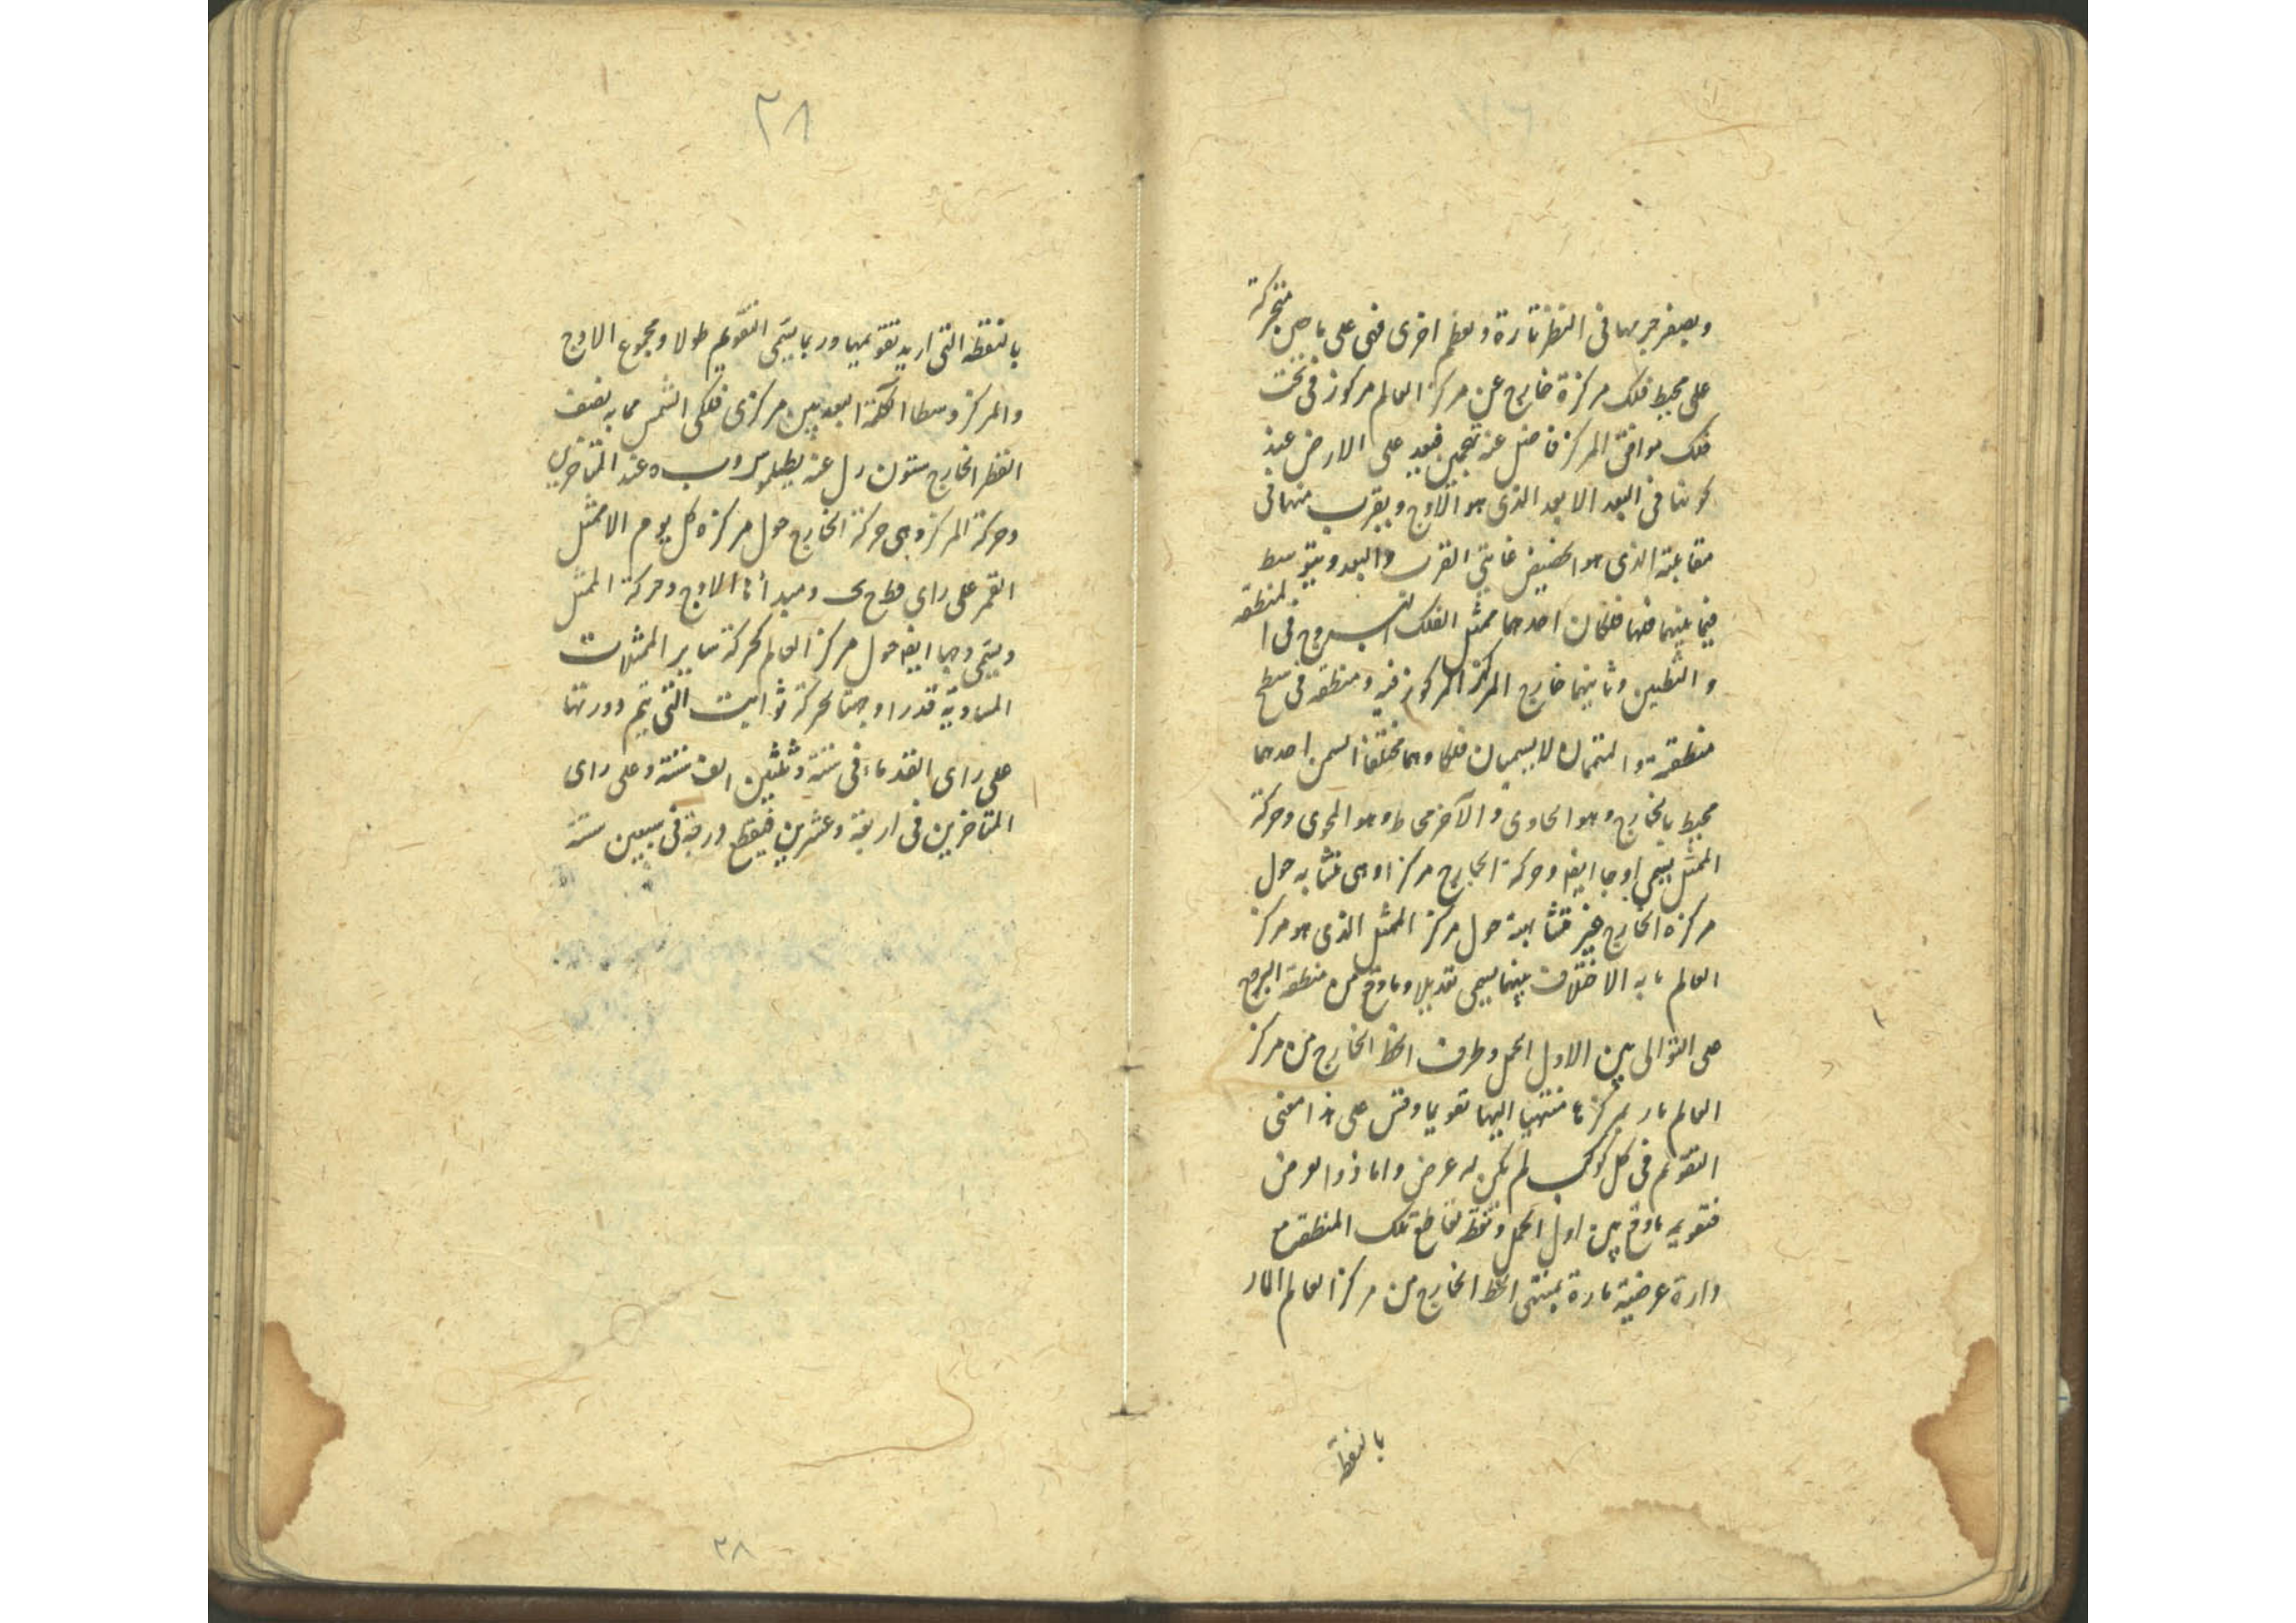 ويصغر جرمها فى النظر تارة ويعظم اخرى فهى على ما حس متحركة
على محيط فلك مركزه خارج عن مركز العالم مركوز فى تحت
فلك موافق المركز فاضل عنه بمتممين فيبعد على الارض عند
كونها فى البعد الابعد الذى هو الاوج ويقرب منها فى
مقابلته الذى هو الحضيض غايتى القرب والبعد ويتوسط
فيما بينهما فلها فلكان احدهما ممثل الفلك البروج فى المنطقه
والقطبين وثانيهما خارج المركز المركوز فيه ومنطقته فى سطح
منطقته والمتممان لا يسميان فلكا وهما مختلفا السمن احدهما
محيط بالخارج وهو الحاوى والآخر محاط وهو المحوى وحركة
الممثل يسمى اوجا ايضا وحركة الخارج مركزا وهى متشابه حول
مركزه الخارج غير متشابهة حول مركز الممثل الذى هو مركز
العالم ما به الاختلاف بينهما يسمى تعديلا وما وقع من منطقة البروج
على التوالى بين الاول الحمل وطرف الخط الخارج من مركز
العالم مار بمركزها منتهيا اليها تقويما وقس على هذا معنى
التقويم فى كل كوكب لم يكن له عرض واما ذو العرض
فتقويمه ما وقع بين اول الحمل ونقطة تقاطع تلك المنطقه مع
دارة عرضية مارة بمنتهى الخط الخارج من مركز العالم المار
بالنقطة
٢٨
بالنقطه التى اريد تقويمها وربما يسمى التقويم طولا ومجموع الاوج
والمركز وسطا البعد بين مركزى فلكى الشمس مما به نصف
القطر الخارج ستون عند بطليموس عند المتاخرين
وحركة المركز وهى حركة الخارج حول مركزه كل يوم الا ممثل
القمر على راى ومبدأها الاوج وحركة الممثل
ويسمى وجها ايضا حول مركز العالم كحركة ساير الممثلات
المساوية قدرا وجهتا لحركة ثوابت التى يتم دورتها
على راى القدماء فى ستة وثلثين الف سنة وعلى راى
المتاخرين فى اربعة وعشرين فيقطع درجة فى سبعين سنة
٢٨